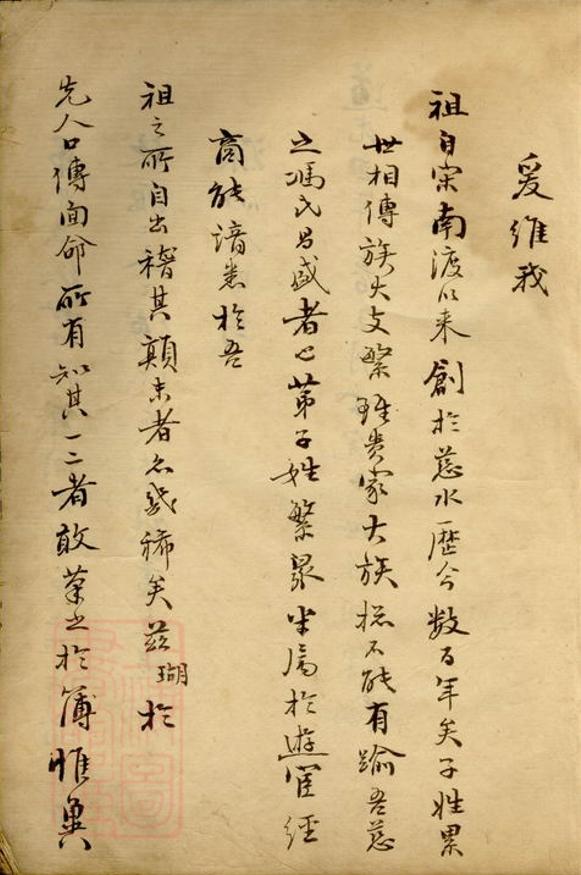 爰維我
祖自宋南渡以来創於慈水歴今数百年矣子姓累
世相傳族大支繁雖貴家大族概不能有踰吾慈
之馮氏昌盛者也第子姓繁衆半属於遊宦經
商能諳悉於吾
祖之所自出稽其顛末者亦幾稀矣兹瑚於
先人口傳面命所有知其一二者敢筆之於簿惟兾